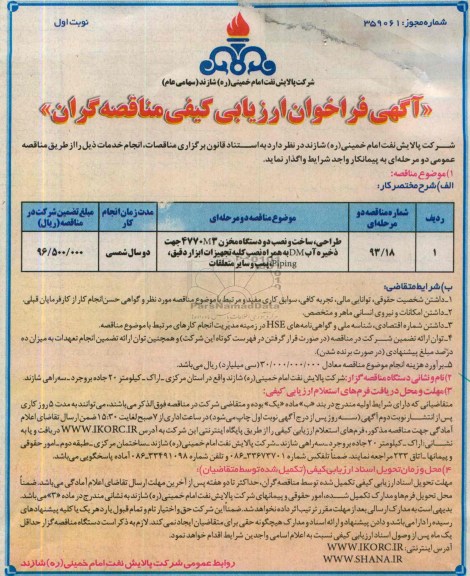 شماره مجوز: ۳۵۹۰۶۱
نوبت اول
شرکت پالایش نفت امام خمینی (ره) شازند (سهامی عام)
«آگهی فراخوان ارزیابی کیفی مناقصه گران»
شرکت پالایش نفت امام خمینی (ره) شازند در نظر دارد به استناد قانون برگزاری مناقصات، انجام خدمات ذیل را از طریق مناقصه
عمومی دو مرحله‌ای به پیمانکار واجد شرایط واگذار نماید.
۱) موضوع مناقصه:
الف) شرح مختصر کار:
ردیف
شماره مناقصه دو مرحله‌ای
موضوع مناقصه دو مرحله‌ای
مدت زمان انجام کار
مبلغ تضمین شرکت در مناقصه (ریال)
۱
۹۳/۱۸
طراحی، ساخت و نصب دو دستگاه مخزن ۴۷۷۰M3 جهت
ذخیره آب DM به همراه نصب کلیه تجهیزات ابزار دقیق،
Piping، پمپ و سایر متعلقات
دو سال شمسی
۹۶/۵۰۰/۰۰۰
ب) شرایط متقاضی:
۱ـ داشتن شخصیت حقوقی، توانایی مالی، تجربه کافی، سوابق کاری مفید و مرتبط با موضوع مناقصه مورد نظر و گواهی حسن انجام کار از کارفرمایان قبلی.
۲ـ داشتن امکانات و نیروی انسانی ماهر و متخصص.
۳ـ داشتن شماره اقتصادی، شناسه ملی و گواهی‌نامه‌های HSE در زمینه مدیریت انجام کارهای مرتبط با موضوع مناقصه.
۴ـ توان ارائه تضمین شرکت در مناقصه (در صورت قرار گرفتن در فهرست کوتاه این شرکت) و همچنین توان ارائه تضمین انجام تعهدات به میزان ده
درصد مبلغ پیشنهادی (در صورت برنده شدن).
۵ـ برآورد هزینه انجام موضوع مناقصه معادل ۳۰/۰۰۰/۰۰۰/۰۰۰ (سی میلیارد) ریال می‌باشد.
۲) نام و نشانی دستگاه مناقصه گزار: شرکت پالایش نفت امام خمینی (ره) شازند واقع در استان مرکزی ـ اراک ـ کیلومتر ۲۰ جاده بروجرد ـ سه راهی شازند.
۳) مهلت و محل دریافت فرم‌های استعلام ارزیابی کیفی:
متقاضیانی که دارای شرایط اولیه مندرج در بند «ب» ماده «یک» بوده و متقاضی شرکت در مناقصه فوق الذکر می‌باشند، می‌توانند به مدت ۵ روز کاری
پس از انتشار نوبت دوم آگهی (سه روز پس از درج آگهی نوبت اول چاپ می‌شود) در ساعات اداری از ۷ صبح لغایت ۱۵:۳۰ ضمن ارسال تقاضای اعلام
آمادگی جهت مناقصه مذکور، فرم‌های استعلام ارزیابی کیفی را از طریق پایگاه اینترنتی این شرکت به آدرس WWW.IKORC.IR دریافت و یا به
نشانی: اراک ـ کیلومتر ۲۰ جاده بروجرد ـ سه راهی شازند ـ شرکت پالایش نفت امام خمینی (ره) شازند ـ ساختمان مرکزی ـ طبقه دوم ـ امور حقوقی
و پیمانها ـ اتاق ۲۳۳ مراجعه نمایند. ضمناً تلفکس شماره ۳۳۶۷۳۷۰۱ـ۰۸۶ و تلفن شماره ۳۳۴۹۱۰۹۸ـ۰۸۶ آماده پاسخگویی می‌باشد.
۴) محل و زمان تحویل اسناد ارزیابی کیفی (تکمیل شده توسط متقاضیان):
مهلت تحویل اسناد ارزیابی کیفی تکمیل شده توسط مناقصه گران، حداکثر تا دو هفته پس از آخرین مهلت ارسال تقاضای اعلام آمادگی می‌باشد. ضمناً
محل تحویل فرم‌ها و مدارک تکمیل شده، امور حقوقی و پیمانهای شرکت پالایش نفت امام خمینی (ره) شازند به نشانی مندرج در ماده «۳» می‌باشد.
بدیهی است به مدارک ارسالی بعد از مهلت مقرر ترتیب اثر داده نخواهد شد. ضمناً این شرکت حق و اختیار تام و تمام قبول یا رد هر یک یا کلیه پیشنهادهای
رسیده را دارا می‌باشد و دادن پیشنهاد و ارائه اسناد و مدارک هیچگونه حقی برای متقاضیان ایجاد نمی‌کند. لازم به ذکر است دستگاه مناقصه گزار حداقل
یک ماه پس از وصول اسناد ارزیابی کیفی نسبت به اعلام اسامی واجدین شرایط اقدام خواهد نمود.
آدرس اینترنتی: WWW.IKORC.IR
WWW.SHANA.IR
روابط عمومی شرکت پالایش نفت امام خمینی (ره) شازند